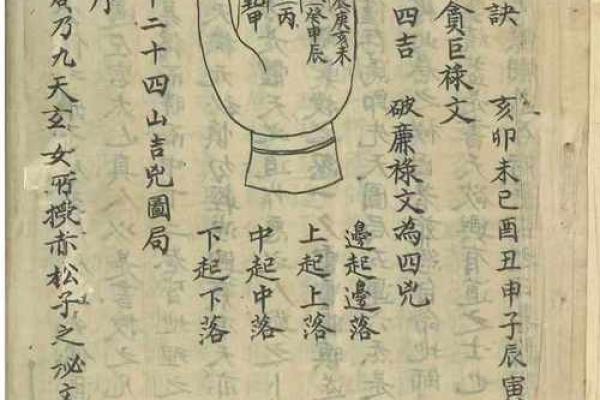 訣 亥卯未巳酉丑申子辰寅
貪巨祿文
四吉 破廉祿文為四兇
庚亥未
癸申辰
丙
甲
邊起邊落
上起上落
中起中落
下起下落
二十四山吉兇圖局
乃九天玄女所授赤松子之秘文